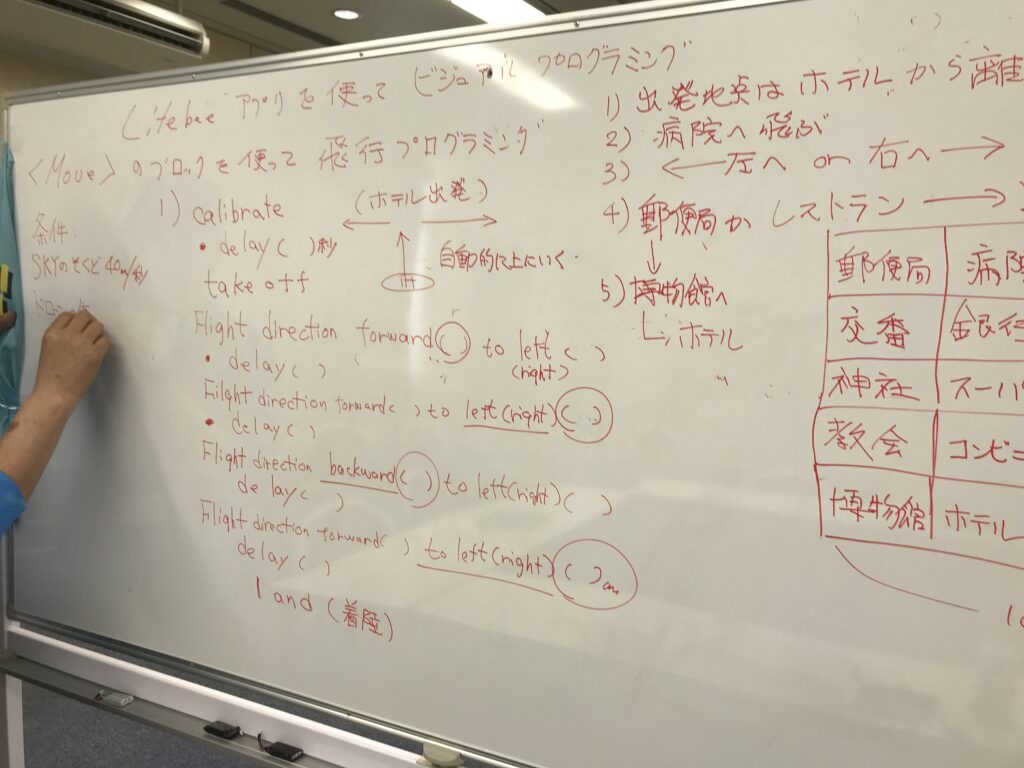 Litebee アプリを使って ビジュアルプログラミング
<Move>のブロックを使って 飛行プログラミング
条件:
SKYのそくど 40m/秒
1) calibrate
• delay( )秒
take off
(ホテル出発)
← →
↑
H
自動的に上にいく
Flight direction forward( ) to left ( )
(right)
• delay( )
Filght direction forward( ) to left(right)( )
• delay( )
Flight direction backward( ) to left(right)( )
delay( )
Flight direction forward( ) to left(right)( )cm
delay( )
land (着陸)
1) 出発地点はホテルから離
2) 病院へ飛ぶ
3) ← 左へ or 右へ →
4) 郵便局か レストラン →
↓
5) 博物館へ
↳ ホテル
郵便局 病院
交番 銀行
神社 スーパ
教会 コンビニ
博物館 ホテル